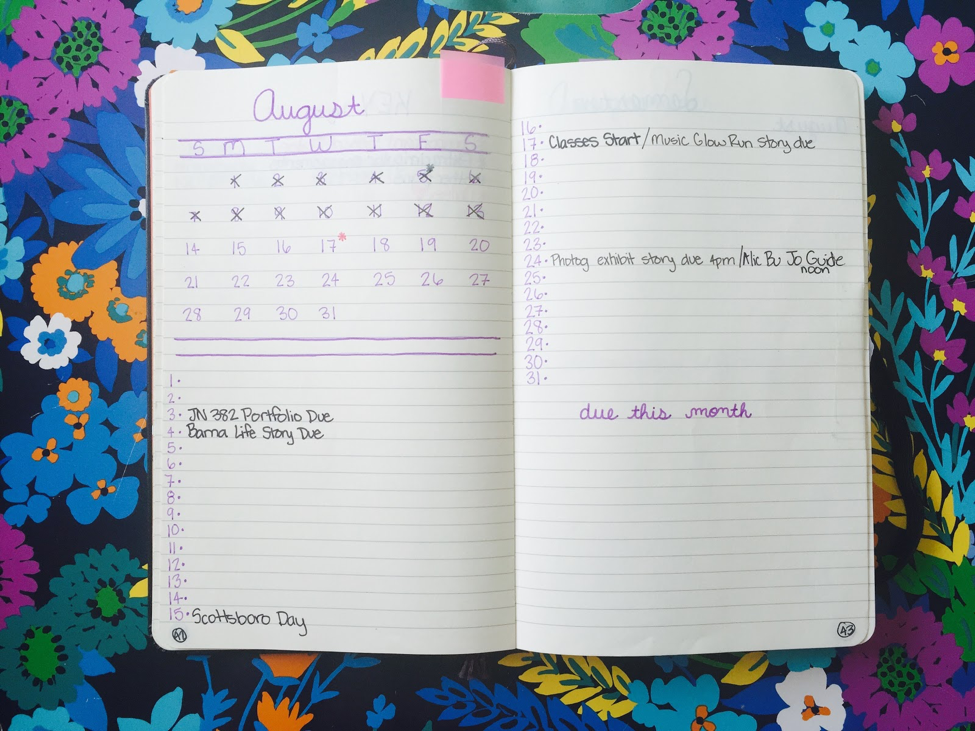 August
S M T W T F S
14 15 16 17* 18 19 20
21 22 23 24 25 26 27
28 29 30 31
1·
2·
3· JN 382 Portfolio Due
4· Bama Life Story Due
5·
6·
7·
8·
9·
10·
11·
12·
13·
14·
15· Scottsboro Day
16·
17· Classes Start/Music Glow Run story due
18·
19·
20·
21·
22·
23·
24· Photog exhibit story due 4pm/Alic Bu Jo Guide
noon
25·
26·
27·
28·
29·
30·
31·
due this month
43